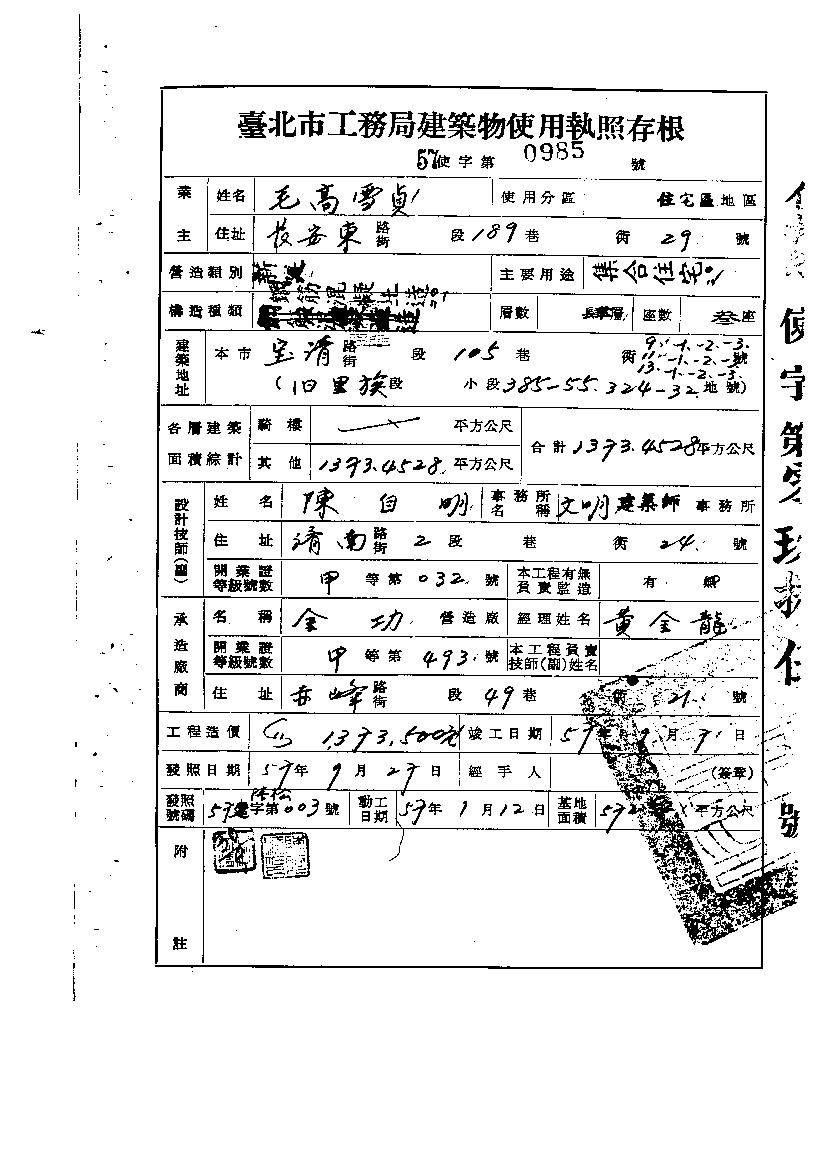 臺北市工務局建築物使用執照存根
57使字第 0985 號
業主 姓名 毛高雪貞 使用分區 住宅區地區
住址 長安東路街 段189巷 衖 29 號
營造類別 新建 主要用途 集合住宅
構造種類 鋼筋混凝土造 層數 座數 叁座
建築地址 本市 宝清路街 段 105 巷 衖 9.-1.-2.-3. 11.-1.-2.- 號 13.-1.-2.-3.
(旧里族段 小段385-55.324-32地號)
各層建築面積綜計 騎樓 平方公尺 合計1373.4528平方公尺
其他 1373.4528 平方公尺
設計技師(副) 姓名 陳自明 事務所名稱 文明建築師事務所
住址 濟南路街 2段 巷 衖 24 號
開業證等級號數 甲等第032號 本工程有無負責監造 有 無
承造廠商 名稱 金功 營造廠 經理姓名 黃金龍
開業證等級號數 甲等第493號 本工程負責技師(副)姓名
住址 赤峰路街 段49巷 衖 21 號
工程造價 1,373,500元 竣工日期 57年 9月 日
發照日期 57年9月27日 經手人 (簽章)
發照號碼 57建 字第003號 動工日期 57年1月12日 基地面積 平方公尺
附註
使字第
號